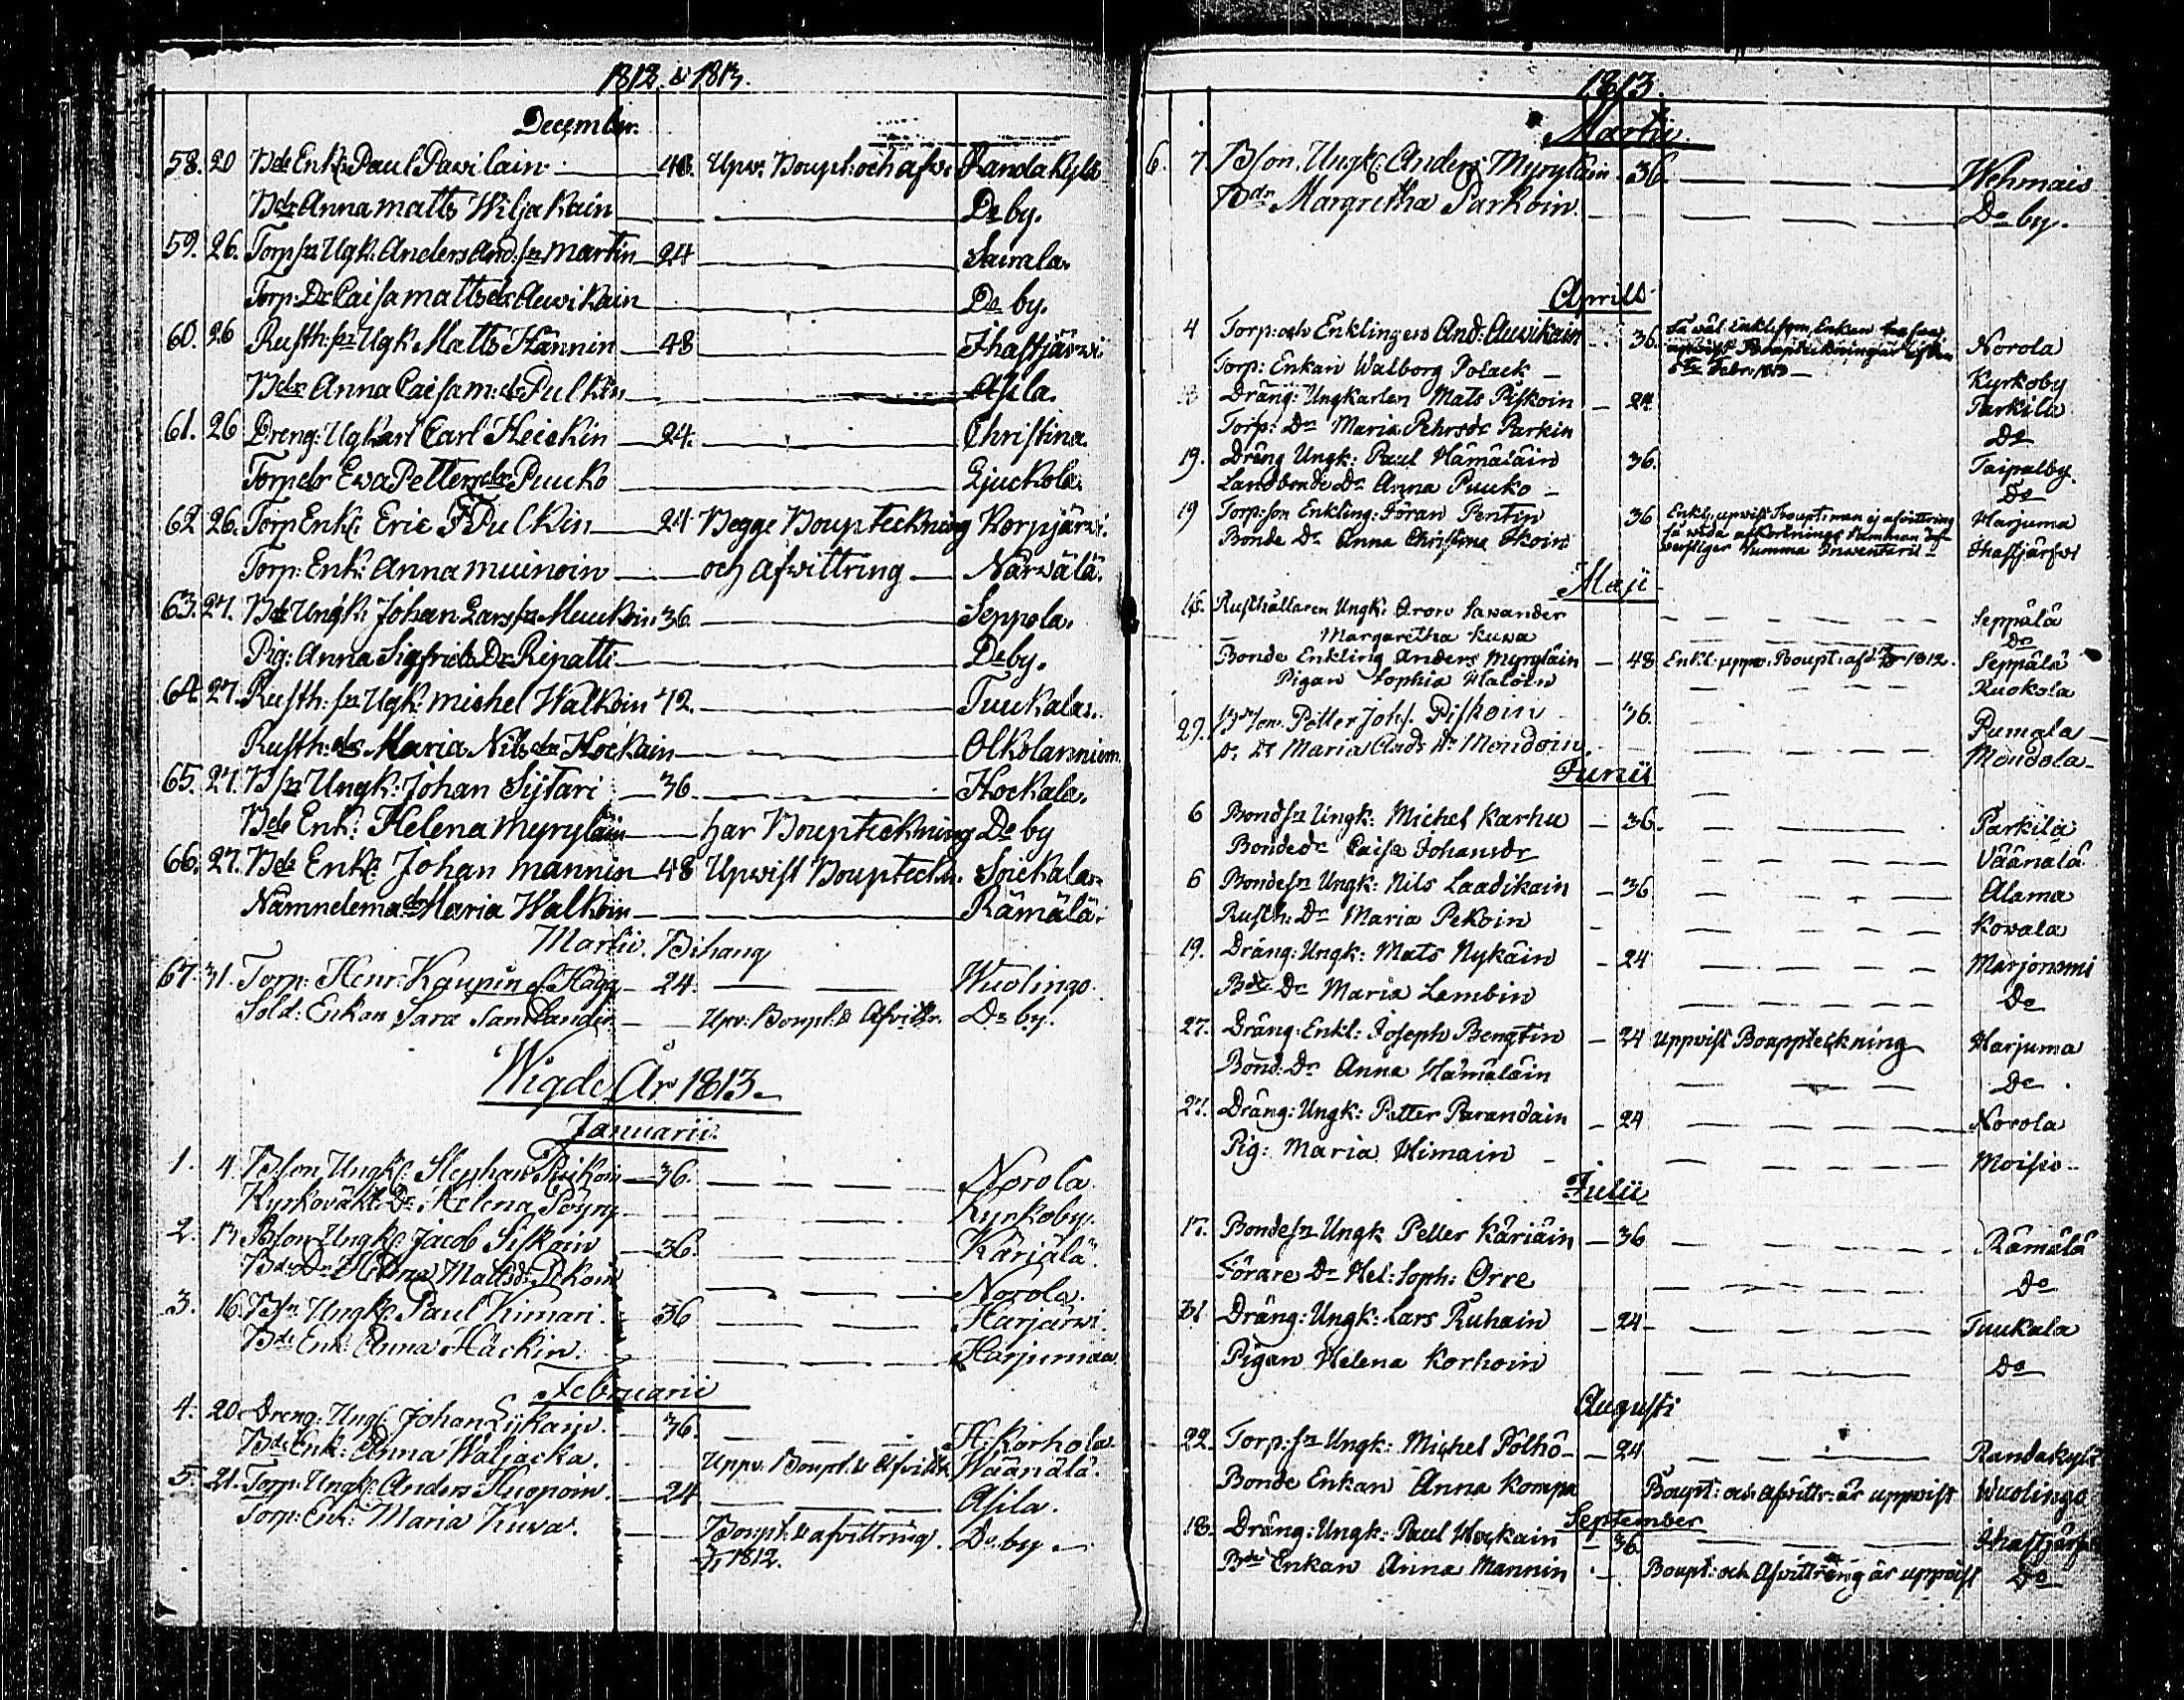 1812 & 1813.
December.
58. 20 Bde Enkl: Paul Pavilain 48. Upv. Boupt: och afv: Randakylä
Bdr Anna Matts Wiljakain Do by.
59. 26. Torp sn Ugk: Anders And: sn Martin 24 Sairala.
Torp: Dr Caisa Matts dr Auvikain Do by.
60. 26 Rusth: sn Ugk Matts Hännin 48 Ihastjärvi
Bdr Anna Caisa M: dr Pulkin Asila.
61. 26 Dreng: Ugkarl Carl Heickin 24. Christina.
Torp dr Ewa Petters dr Puuko Ljuckola.
62 26. Torp Enkl: Eric Pulkin 24 Begge Boupteckning Korpjärvi.
Torp: Enk: Anna Muinoin och afvittring Närvälä.
63. 27. Bde Ungk: Johan Lars sn Muukoin 36. Seppola.
Pig: Anna Sigfrids Dr Repatti Do by.
64. 27. Rusth: sn Ugk: Michel Walkoin 42. Tuukala.
Rusth: dr Maria Nils dr Hockain Olkolanniem
65. 27. B sn Ungk: Johan Sijtari 36. Hockala.
Bde Enk: Helena Myryläin har Boupteckning Do by
66. 27. Bde Enkl: Johan Mannin 48 Upvist Boupteckn. Soickala.
Nämndema dr Maria Walkoin Rämälä.
Martii. Bihang
67. 31. Torp: Henr: Kaupin el. Hägg 24. Wuolingo.
Sold: Enkan Sara Sandander Upv: Boupt: & Afvittr. Do by.
Wigde År 1813.
Januarii.
1. 4. B son Ungkl: Stephan Puikoin 36. Norola.
Kyrkovakt: Dr Helena Pöyry Kyrkoby.
2. 17 B son Ungkl: Jacob Siskoin 36. Käriälä.
Bde Dr Helena Matts d: Pekoin Norola.
3. 16. B sn Ungkl: Paul Kimari. 36 Harjärvi
Bde Enk: Anna Häckin. Harjumaa.
Februarii
4. 20. Dreng: Ungk: Johan Lyikain. 36. H: Korhola
Bde Enk: Anna Waljacka. Uppv. Boupt: & Afvittr. Wäänälä.
5. 21. Torp: Ungkl: Anders Kuopoin. 24 Asila.
Torp: Enk: Maria Kuva. Boupt: & afvittring. Do by.
1812.
1813.
Martii.
6. 7. B son. Ungkl: Anders Myryläin 36. Wehmais
Bdr Margretha Parkoin. Do by.
Aprill
4 Torp: och Enklingen And: Auvikain 36. Så väl Enkl: som Enkan
Febr: 1813 Norola
Torp: Enkan Walborg Polack Kyrkoby
Dräng: Ungkarlen Mats Piskoin 24. Parkila
Torp: Dr Maria Pehrs dr Parkin Do
19. Dräng Ungk: Paul Hämäläin 36. Taipalby.
Landbonde Dr Anna Puuko Do
19 Torp: son Enkling: Jöran Pentin 36 Enkl: upvist Boupt: men ej afvittring Harjuma
Bonde Dr Anna Christina Okoin Ihastjärfvi
Maji
16. Rusthållaren Ungk: Aron Savander Seppälä
Margaretha Kuwa Do
Bonde Enkling Anders Myryläin 48 Enkl: uppv: Boupt: af 1812. Seppälä
Pigan Sophia Haloin Ruokola
29. B son. Petter Johs. Piskoin 36. Pumala
Maria Clads dr Mondoin. Mondola
Junii
6 Bond sn Ungk: Michel Karhu 36. Parkila
Bonde dr Caisa Johans dr Väänälä
6 Bonde sn Ungk: Nils Laadikain 36 Alama
Rusth: Dr Maria Pekoin Kovala
19. Dräng: Ungk: Mats Nykäin 24 Marjoniemi
Bde Dr Maria Lembin Do
27. Dräng: Enkl: Joseph Bengtin 24 uppvist Bouppteckning Harjuma
Bond: Dr Anna Hämäläin Do
27. Dräng: Ungk: Petter Parandain 24 Norola
Pig: Maria Himain Moisio
Julii
17. Bonde sn Ungk Petter Käriäin 36 Rämälä
Förare Dr Hel: Soph: Orre Do
31 Dräng: Ungk: Lars Ruhain 24 Tuukala
Pigan Helena Korhoin Do
Augusti
22. Torp: sn Ungk: Michel Pölhö 24 Randakylä
Bonde Enkan Anna Kompa Boupt: och Afvittr: är uppvist Wuolingo
September
18. Dräng: Ungk: Paul Hockain 36. Ihastjärfvi
Bde Enkan Anna Mannin Boupt: och Afvittring är uppvist Do